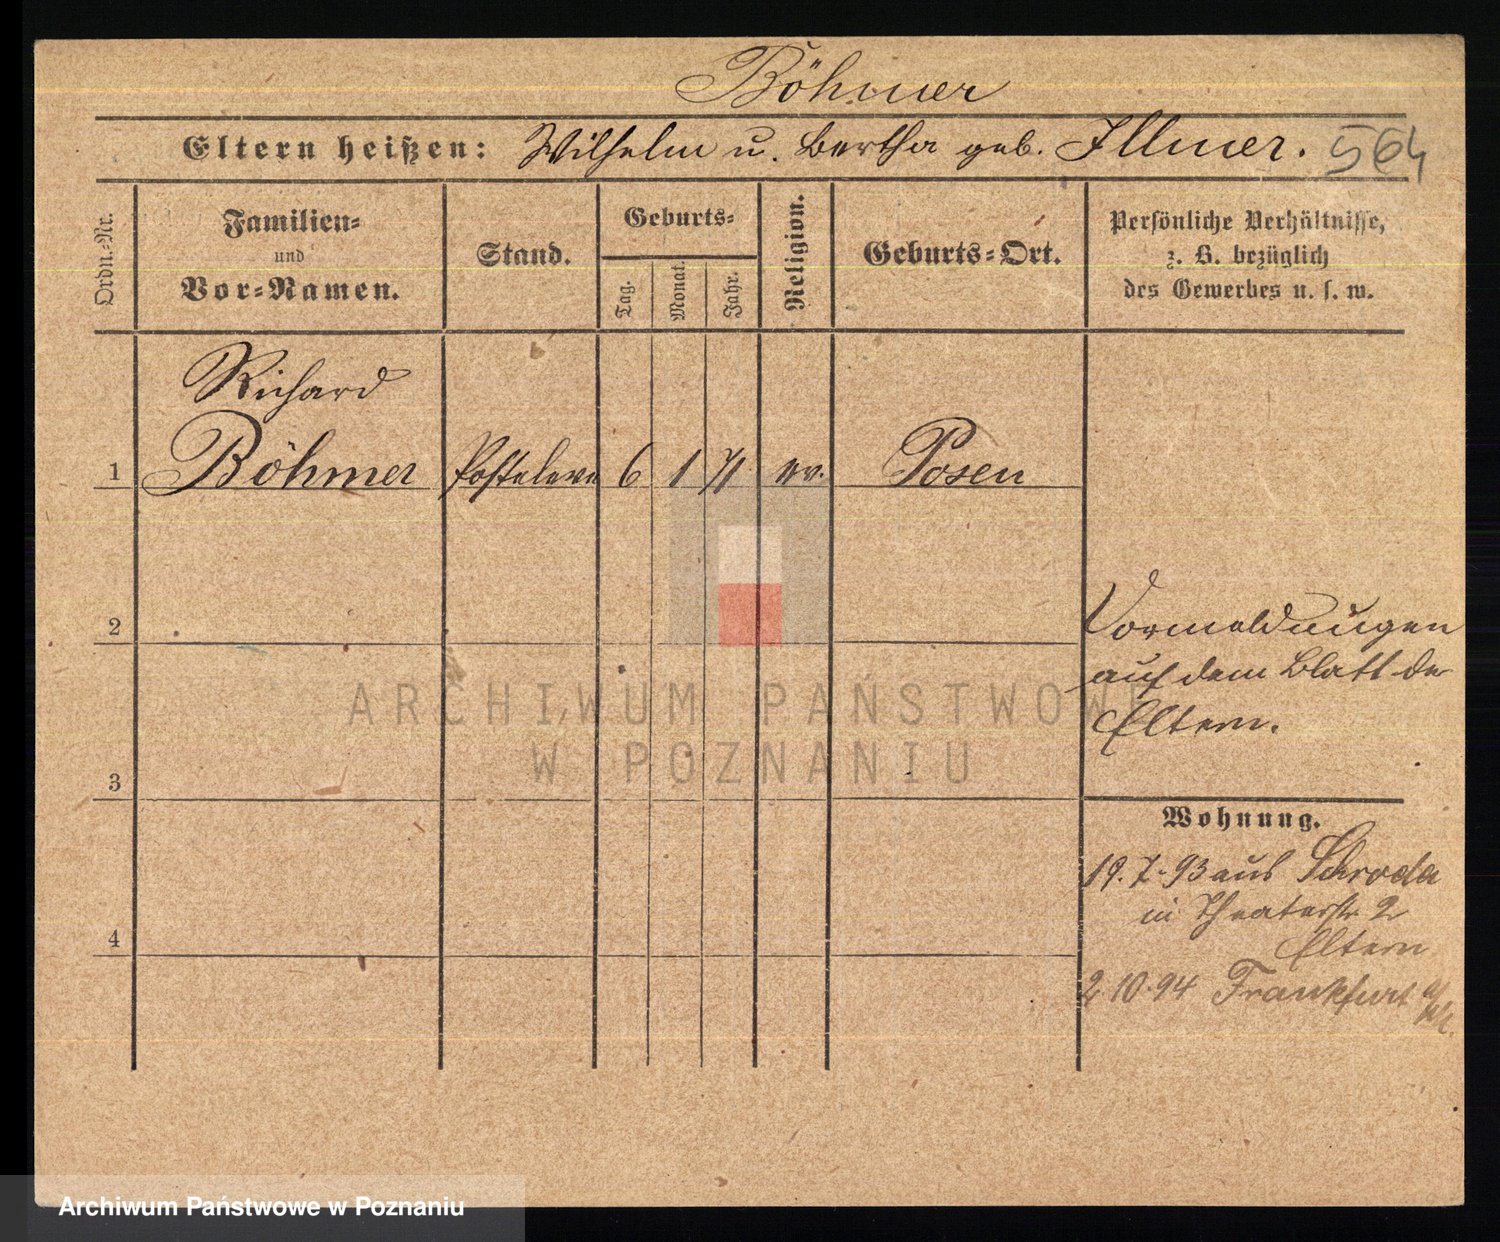 Böhmer
Eltern heißen: Wilhelm u. Bertha geb. Illmer. 564
Ordn.-Nr.
Familien- und Vor-Namen.
Stand.
Geburts-
Tag.
Monat.
Jahr.
Religion.
Geburts-Ort.
Persönliche Verhältnisse,
z. B. bezüglich
des Gewerbes u. s. w.
Richard
1 Böhmer Posteleve 6 1 71 ev. Posen
2
Vormeldungen
auf dem Blatt der
Eltern.
ARCHIWUM PAŃSTWOWE
W POZNANIU
3
Wohnung.
19.7.93 aus Schroda
in Theaterstr 2
Eltern
4
2 10.94 Frankfurt a/
Archiwum Państwowe w Poznaniu